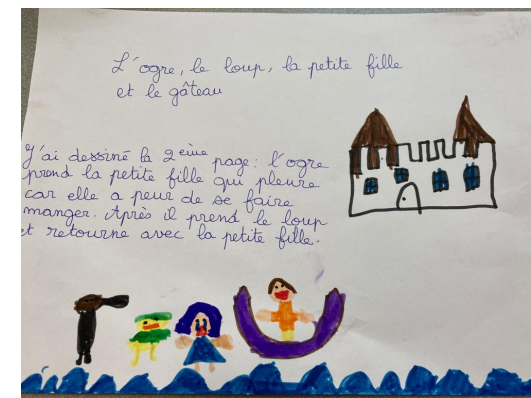 L'ogre, le loup, la petite fille
et le gâteau
J'ai dessiné la 2ème page : l'ogre
prend la petite fille qui pleure
car elle a peur de se faire
manger. Après il prend le loup
et retourne avec la petite fille.